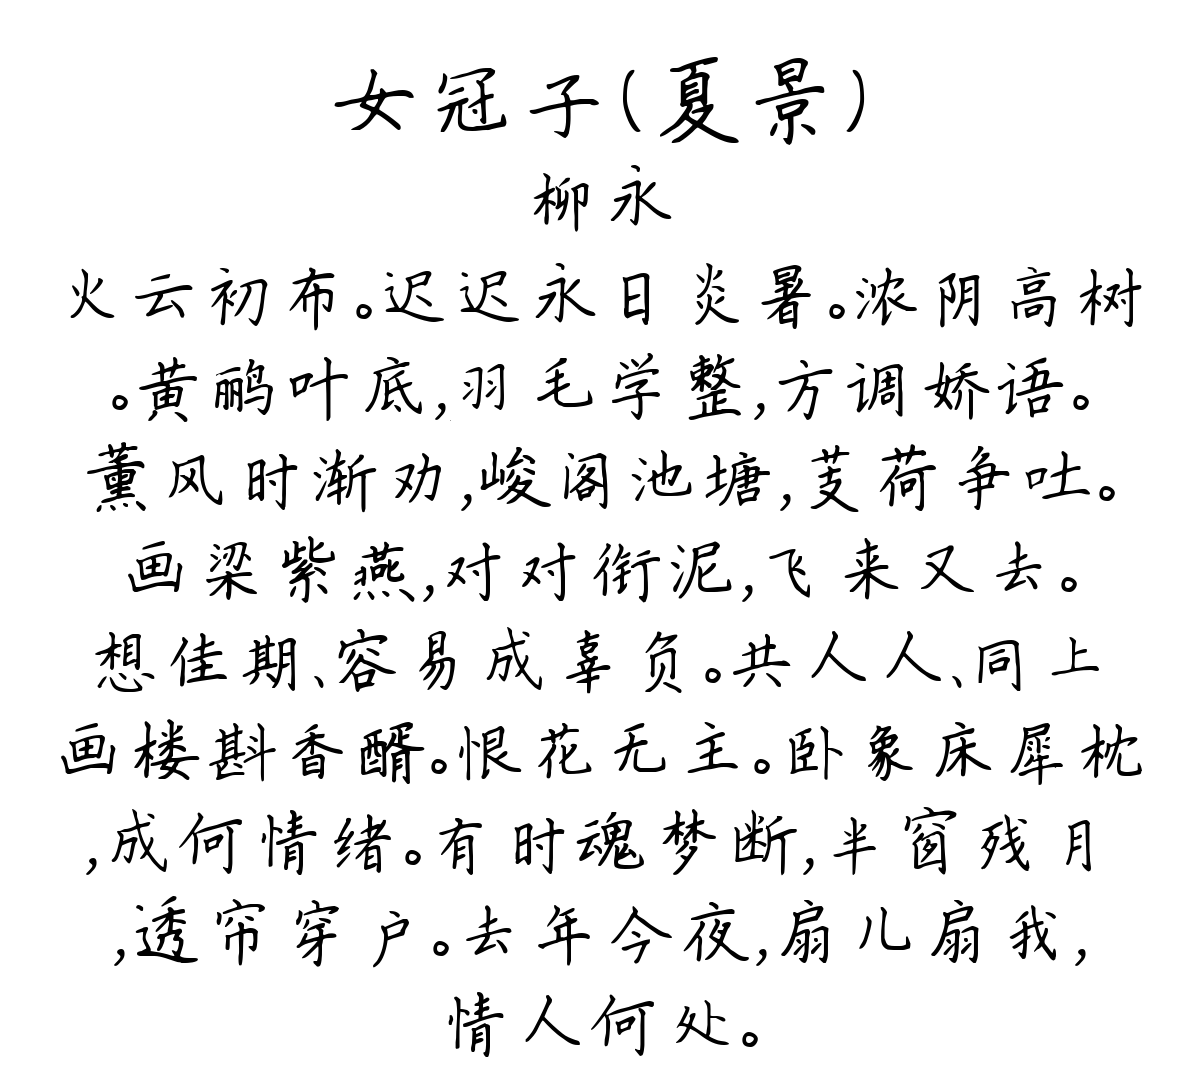 女冠子(夏景)
柳永
火云初布。迟迟永日炎暑。浓阴高树
。黄鹂叶底,羽毛学整,方调娇语。
薰风时渐劝,峻阁池塘,芰荷争吐。
画梁紫燕,对对衔泥,飞来又去。
想佳期、容易成辜负。共人人、同上
画楼斟香醑。恨花无主。卧象床犀枕
,成何情绪。有时魂梦断,半窗残月
,透帘穿户。去年今夜,扇儿扇我,
情人何处。